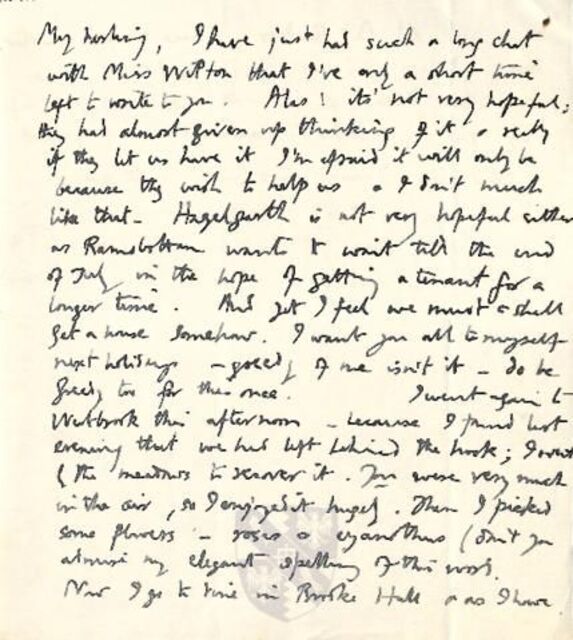 My darling, I have just had such a long chat
with Miss Wilton that I've only a short time
left to write to you. Alas! it's not very hopeful;
they had almost given up thinking of it & really
if they let us have it I'm afraid it will only be
because they wish to help us & I don't much
like that – Hazelgarth is not very hopeful either
as Ramsbottom wants to wait till the end
of July in the hope of getting a tenant for a
longer time. And yet I feel we must & shall
get a house somehow. I want you all to myself
next holidays – greedy of me isn't it – do be
greedy too for this once. I went again to
Westbrook this afternoon – because I found last
evening that we had left behind the book; I went
to the meadows to recover it. You were very much
in the air, so I enjoyed it hugely. Then I picked
some flowers – roses & cyanothus (don't you
admire my elegant spelling of this word.
Now I go to dine in Brooke Hall & as I have